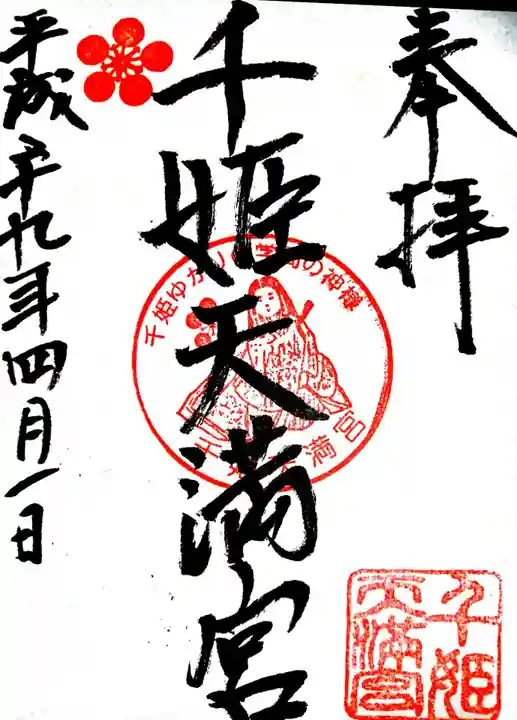 奉拝
千姫天満宮
千姫ゆかり 学問の神様
千姫天満宮
平成二十九年四月一日
千姫
天満宮